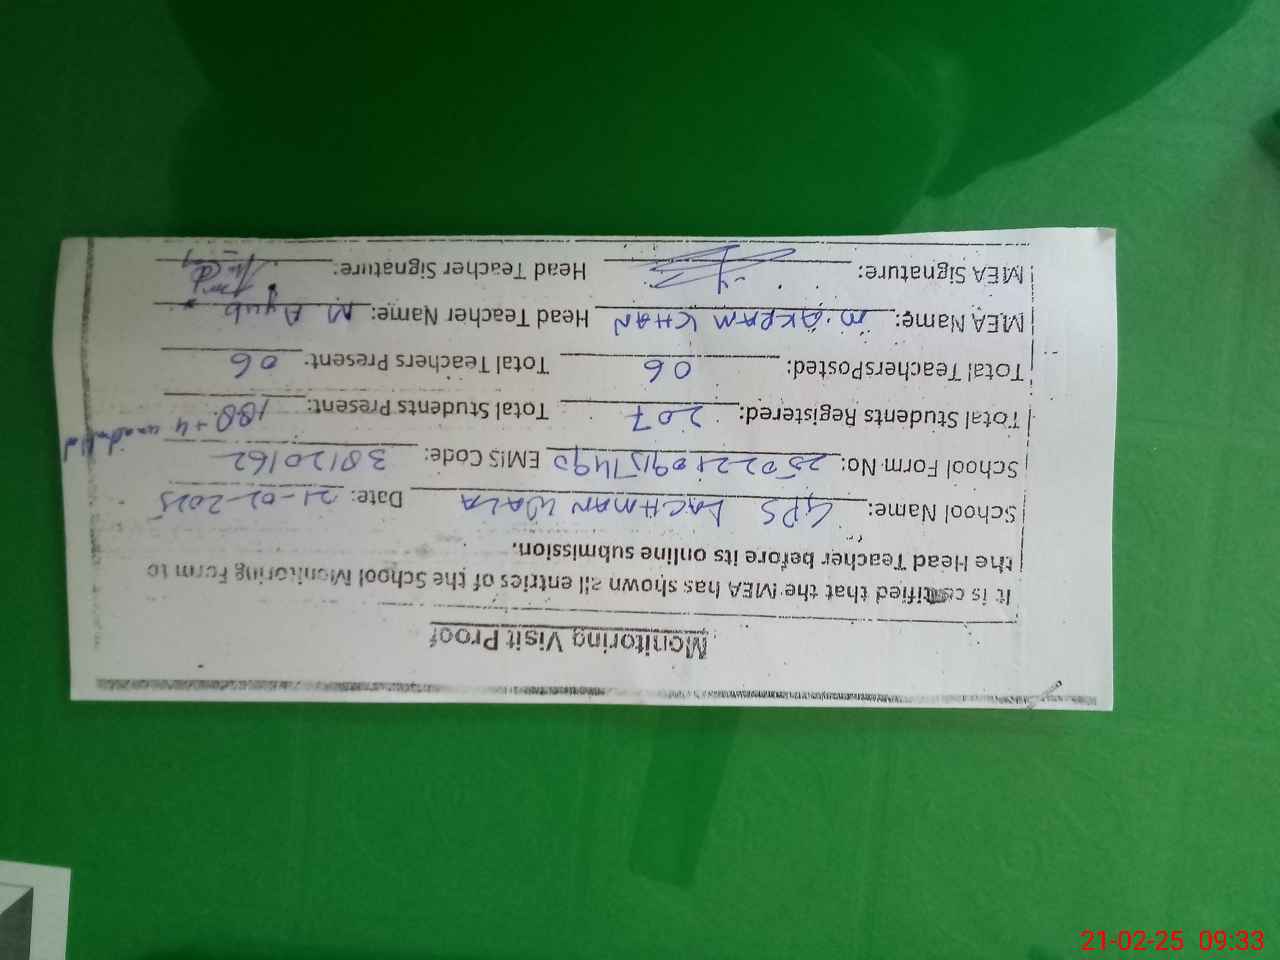 Monitoring Visit Proof
It is certified that the MEA has shown all entries of the School Monitoring Form to
the Head Teacher before its online submission.
School Name: GPS LACHMAN WALA Date: 21-02-2025
School Form No: EMIS Code: 38120162
Total Students Registered: 207 Total Students Present: 188 +4 unadmitted
Total TeachersPosted: 06 Total Teachers Present: 06
MEA Name: M. AKRAM KHAN Head Teacher Name: M Ayub
MEA Signature: Head Teacher Signature:
21-02-25 09:33